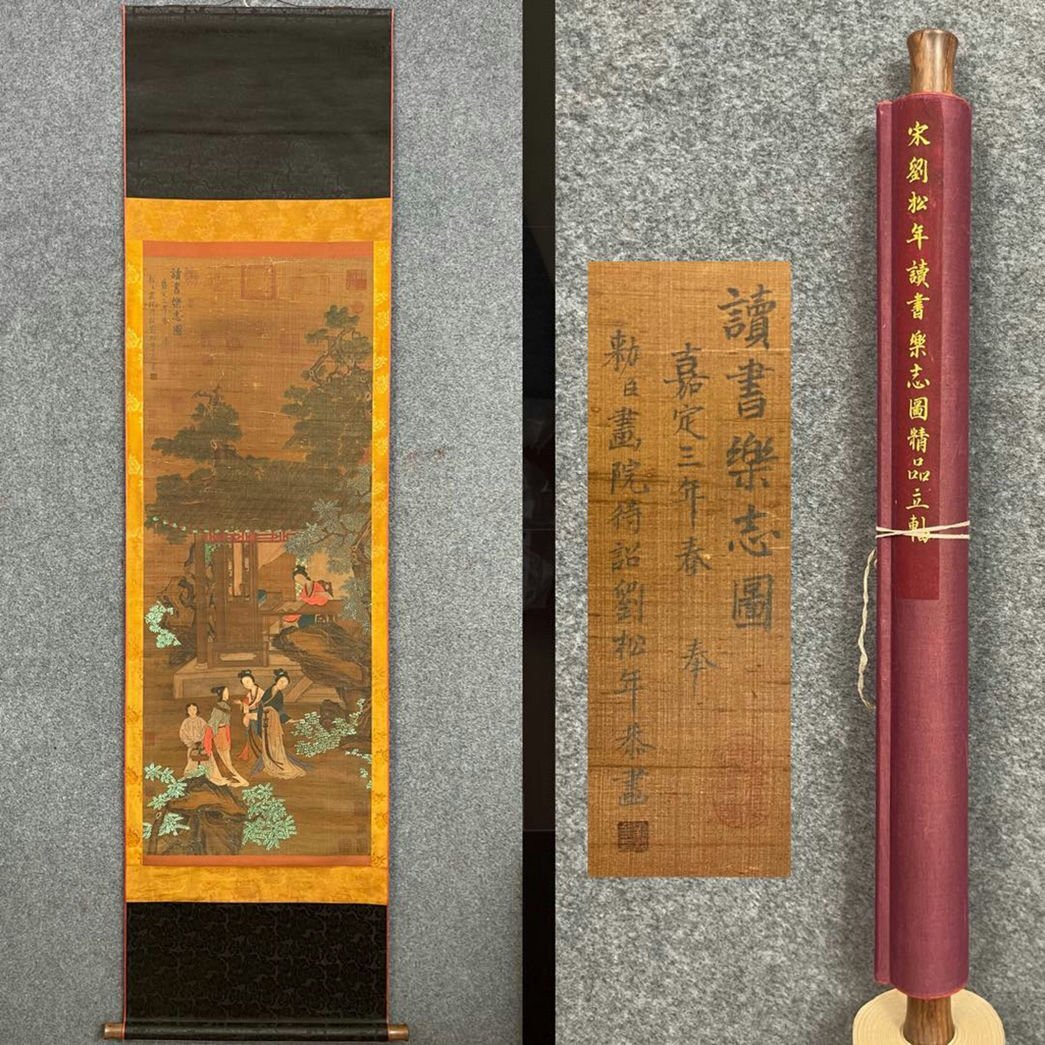 讀書樂志圖
嘉定三年春 奉
勅日畫院待詔劉松年恭畫
宋劉松年讀書樂志圖精品立軸